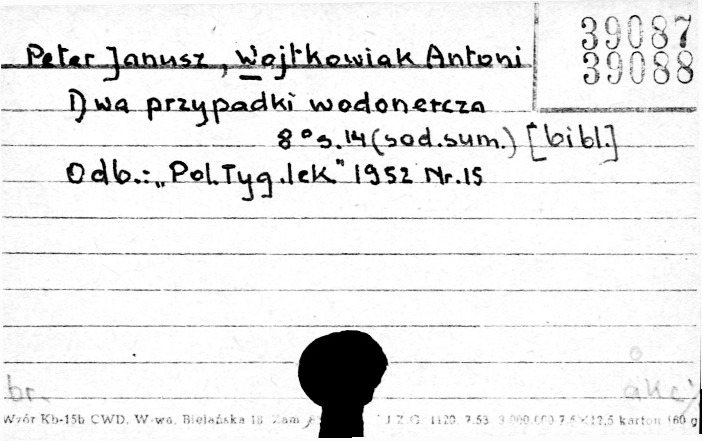 39087
39088
Peter Janusz, Wojtkowiak Antoni
Dwa przypadki wodonercza
8° s. 14 (sod. sum.) [bibl.]
Odb.: „Pol. Tyg. lek" 1952 Nr. 15
br. akc
Wzór Kb-15b CWD, W-wa, Bielańska 18 Zam J Z.G. 1120 7.53 3 000.000 7,5×12,5 karton 160 g